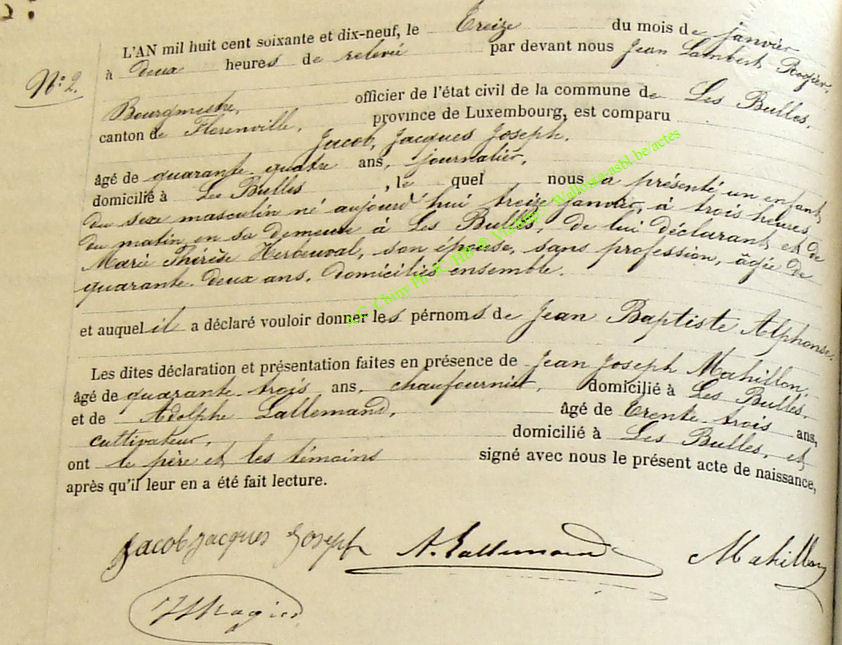 L'AN mil huit cent soixante et dix-neuf, le Treize du mois de janvier
à deux heures de relevée par devant nous Jean Lambert Rogier,
N° 2.
Bourgmestre, officier de l'état civil de la commune de Les Bulles,
canton de Florenville, province de Luxembourg, est comparu
Jacob, Jacques Joseph,
âgé de quarante quatre ans, journalier,
domicilié à Les Bulles, le quel nous a présenté un enfant
du sexe masculin né aujourd'hui treize janvier, à trois heures
du matin en sa demeure à Les Bulles, de lui déclarant et de
Marie Thérèse Herbeuval, son épouse, sans profession, âgée de
quarante-deux ans, domiciliés ensemble.
et auquel il a déclaré vouloir donner les pérnoms de Jean Baptiste Alphonse.
Les dites déclaration et présentation faites en présence de Jean Joseph Mahillon,
âgé de quarante trois ans, chaufournier, domicilié à Les Bulles
et de Adolphe Lallemand, âgé de trente trois ans,
cultivateur, domicilié à Les Bulles, et
ont le père et les témoins signé avec nous le présent acte de naissance,
après qu'il leur en a été fait lecture.
Jacob Jacques Joseph A. Lallemand Mahillon
JLRogier